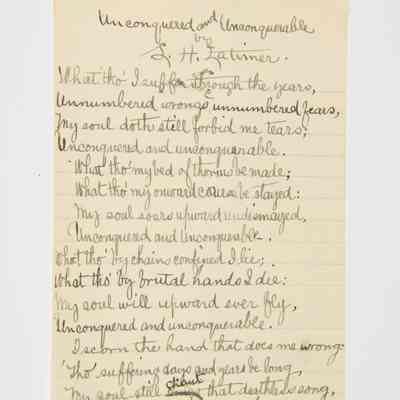 Unconquered and Unconquerable
by
L. H. Latimer.
What tho' I suffer through the years,
Unnumbered wrongs, unnumbered fears,
My soul doth still forbid me tears;
Unconquered and unconquerable.
What tho' my bed of thorns be made;
What tho' my onward course be stayed:
My soul soars upward undismayed,
Unconquered and unconquerable.
What tho' by chains confined I lie;
What tho' by brutal hands I die:
My soul will upward ever fly,
Unconquered and unconquerable.
I scorn the hand that does me wrong:
Tho' suffering days and years be long,
My soul still chant that deathless song,